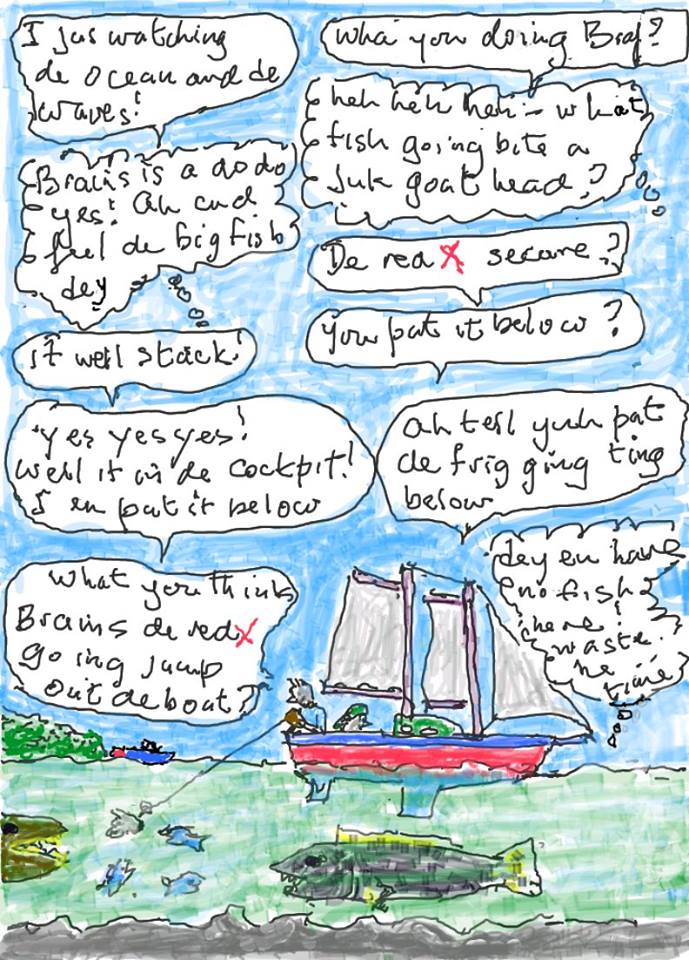 wha you doing Braf?
I jus watching
de ocean and de
waves!
heh heh heh - what
fish going bite a
juk goat head?
Brains is a dodo
yes! Ah cud
feel de big fish
dey
De red X secure?
it well stack!
you pat it below?
yes yes yes!
well it in de cockpit!
I en pat it below
ah tell yuh pat
de frigging ting
below
What you think
Brains de red X
going jump
out de boat?
dey en have
no fish
here!
waste
he time